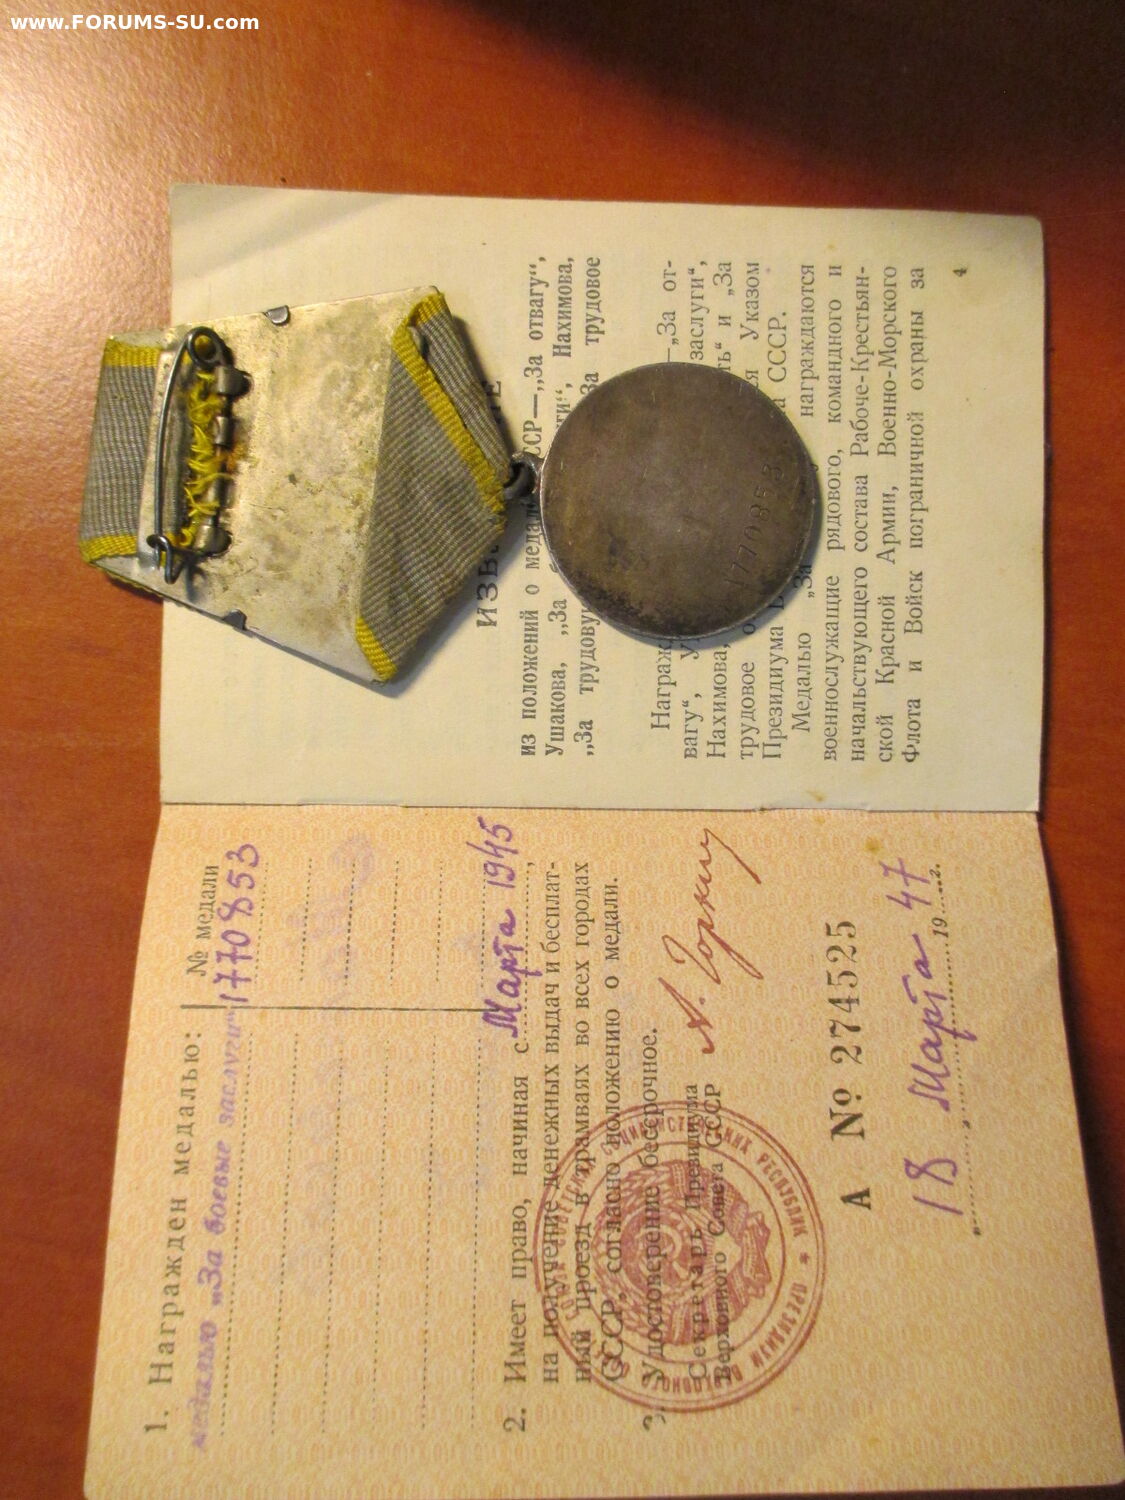 www.FORUMS-SU.com
1. Награжден медалью:
№ медали
медалью „За боевые заслуги“
1770853
2. Имеет право, начиная с Марта 1945,
на получение денежных выдач и бесплат-
ный проезд в трамваях во всех городах
СССР, согласно положению о медали.
3. Удостоверение бессрочное.
Секретарь Президиума
Верховного Совета СССР
А. Горкин
А № 274525
18 Марта 1947 г.
из положений о медал СССР—„За отвагу“,
Ушакова, „За Нахимова,
„За трудовую За трудовое
Награж —„За от-
вагу“, У заслуги“,
Нахимова, ть“ и „За
трудовое о я Указом
Президиума В а СССР.
Медалью „За награждаются
военнослужащие рядового, командного и
начальствующего состава Рабоче-Крестьян-
ской Красной Армии, Военно-Морского
Флота и Войск пограничной охраны за
4
1770853